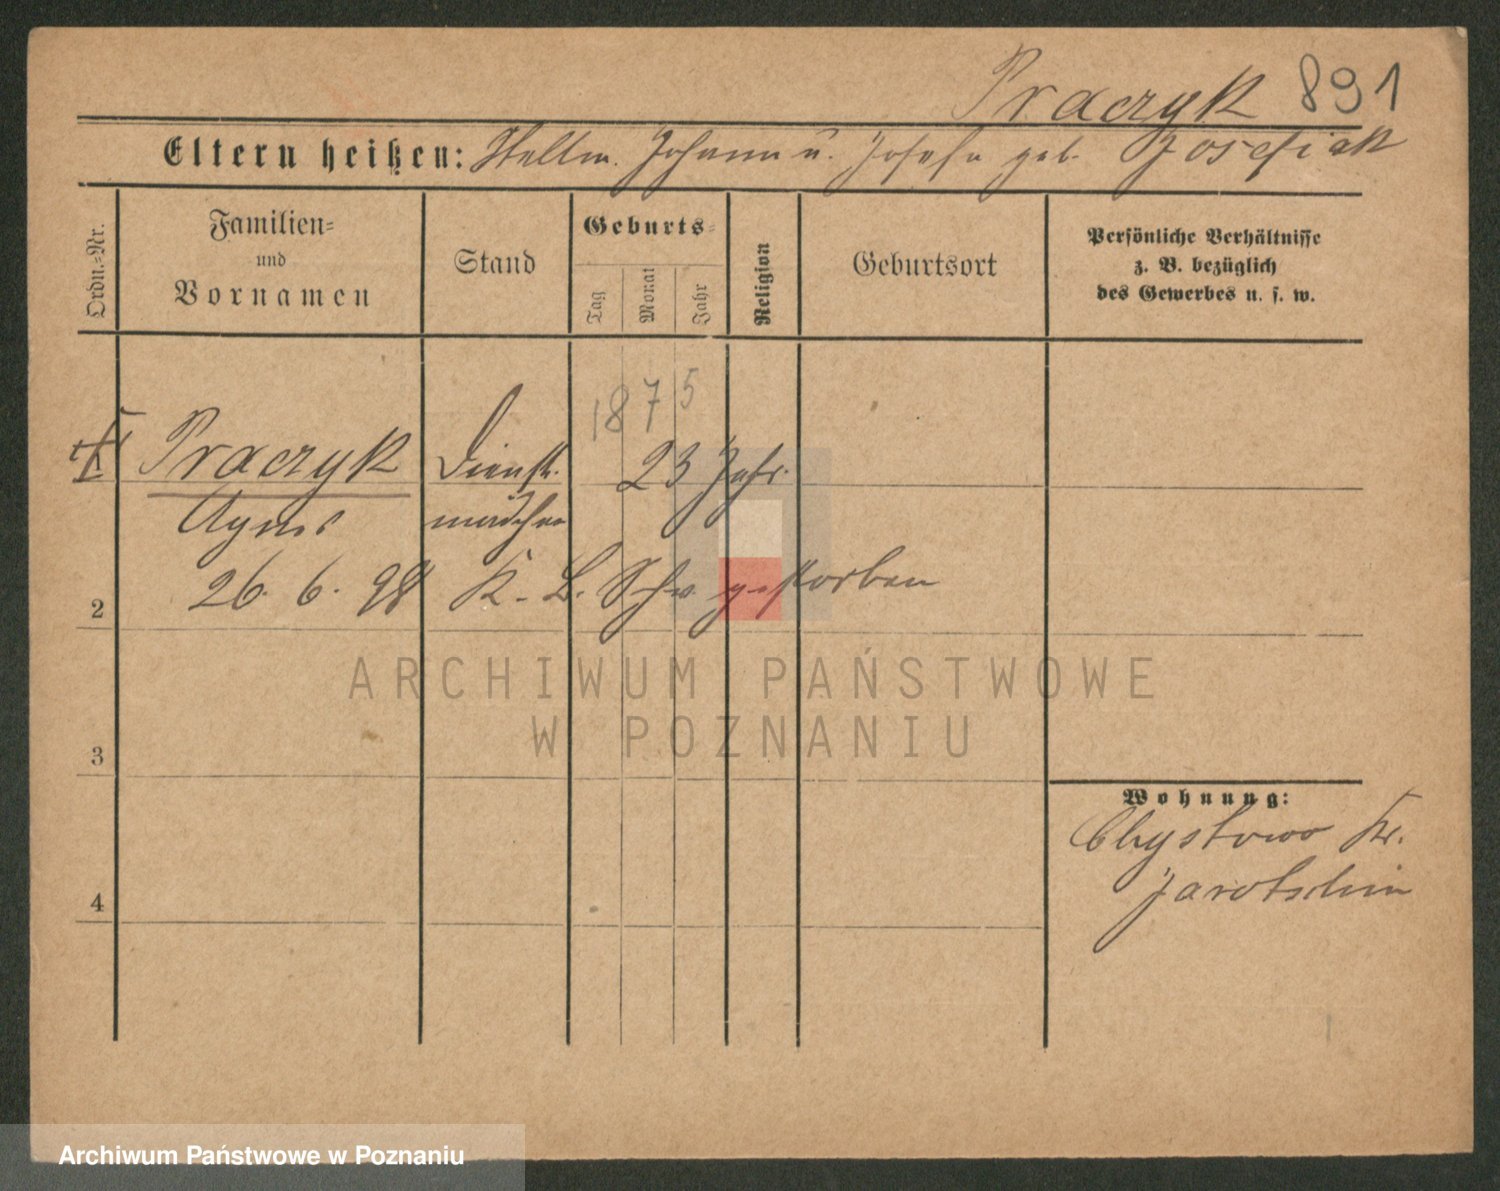 Praczyk 891
Eltern heißen: Stellm. Johann u. Josefa geb. Josefiak
Ordn.-Nr.
Familien-
und
Vornamen
Stand
Geburts-
Tag
Monat
Jahr
Religion
Geburtsort
Persönliche Verhältnisse
z. B. bezüglich
des Gewerbes u. s. w.
1875
Praczyk Dienst- 23 Jahr.
Agnes mädchen
2 26. 6. 98 K. L. gestorben
3
4
Wohnung:
Chrystowo Kr.
Jarotschin
ARCHIWUM PAŃSTWOWE
W POZNANIU
Archiwum Państwowe w Poznaniu